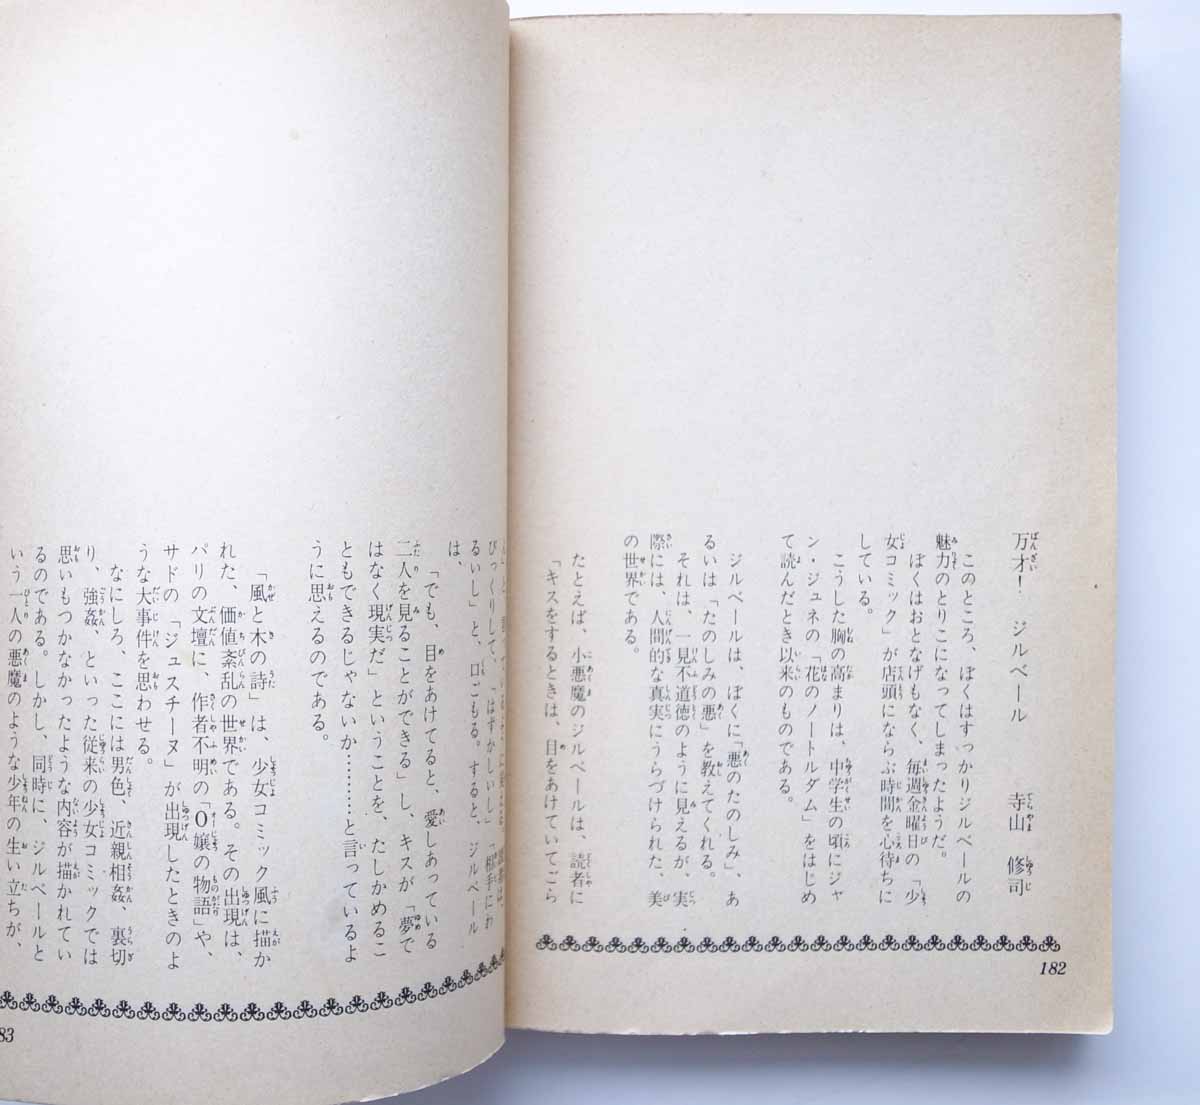 万才！　ジルベール　　寺山　修司
このところ、ぼくはすっかりジルベールの
魅力のとりこになってしまったようだ。
ぼくはおとなげもなく、毎週金曜日の「少
女コミック」が店頭にならぶ時間を心待ちに
している。
こうした胸の高まりは、中学生の頃にジャ
ン・ジュネの「花のノートルダム」をはじめ
て読んだとき以来のものである。
ジルベールは、ぼくに「悪のたのしみ」、あ
るいは「たのしみの悪」を教えてくれる。
それは、一見不道徳のように見えるが、実
際には、人間的な真実にうらづけられた、美
の世界である。
たとえば、小悪魔のジルベールは、読者に
「キスをするときは、目をあけていてごら
182
びっくりして、「はずかしいし」「相手にわ
るいし」と、口ごもる。すると、ジルベール
は、
「でも、目をあけてると、愛しあっている
二人を見ることができる」し、キスが「夢で
はなく現実だ」ということを、たしかめるこ
ともできるじゃないか………と言っているよ
うに思えるのである。
「風と木の詩」は、少女コミック風に描か
れた、価値紊乱の世界である。その出現は、
パリの文壇に、作者不明の「O嬢の物語」や、
サドの「ジュスチーヌ」が出現したときのよ
うな大事件を思わせる。
なにしろ、ここには男色、近親相姦、裏切
り、強姦、といった従来の少女コミックでは
思いもつかなかったような内容が描かれてい
るのである。しかし、同時に、ジルベールと
いう一人の悪魔のような少年の生い立ちが、
83